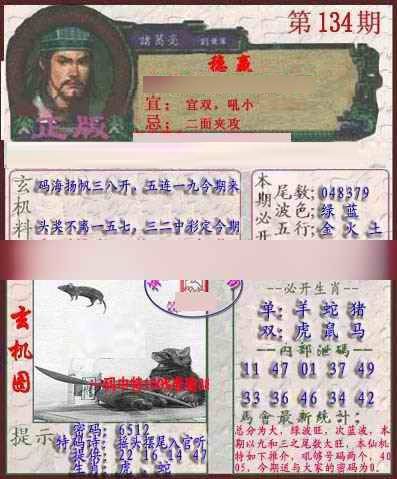 第134期
諸葛亮
稳赢
正版
宜：宜双，吼小
忌：二面夹攻
玄机料
码海扬帆三八开，五连一九今期来
头奖不离一五七，三二中彩定今期
本期必开
尾数：048379
波色：绿 蓝
五行：金 火 土
玄机图
必开生肖
单：羊 蛇 猪
双：虎 鼠 马
内部泄码
11 47 01 37 49
33 36 46 34 42
馬會最新统计：
总分为大，绿波旺，次蓝波，本
期以九和三之尾数大旺，本仙机
特如下推介，吼够号码两个，40
05，今期送与大家的密码为0。
提示
密码：6512
特码诗：接头摆尾入官听
提倍：22 16 14 47
生肖：虎，蛇